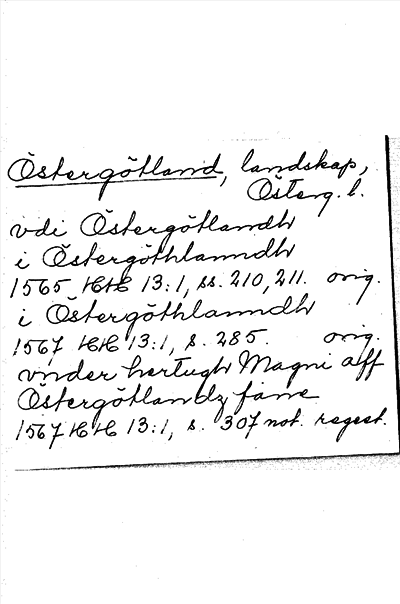 Östergötland, landskap,
Österg. l.
vdi Östergötlandh
i Östergöthlanndh
1565 HH 13:1, ss. 210, 211. orig.
i Östergöthlanndh
1567 HH 13:1, s. 285. orig.
vnder hertugh Magni aff
Östergötlandz fane
1567 HH 13:1, s. 307 not. regest.